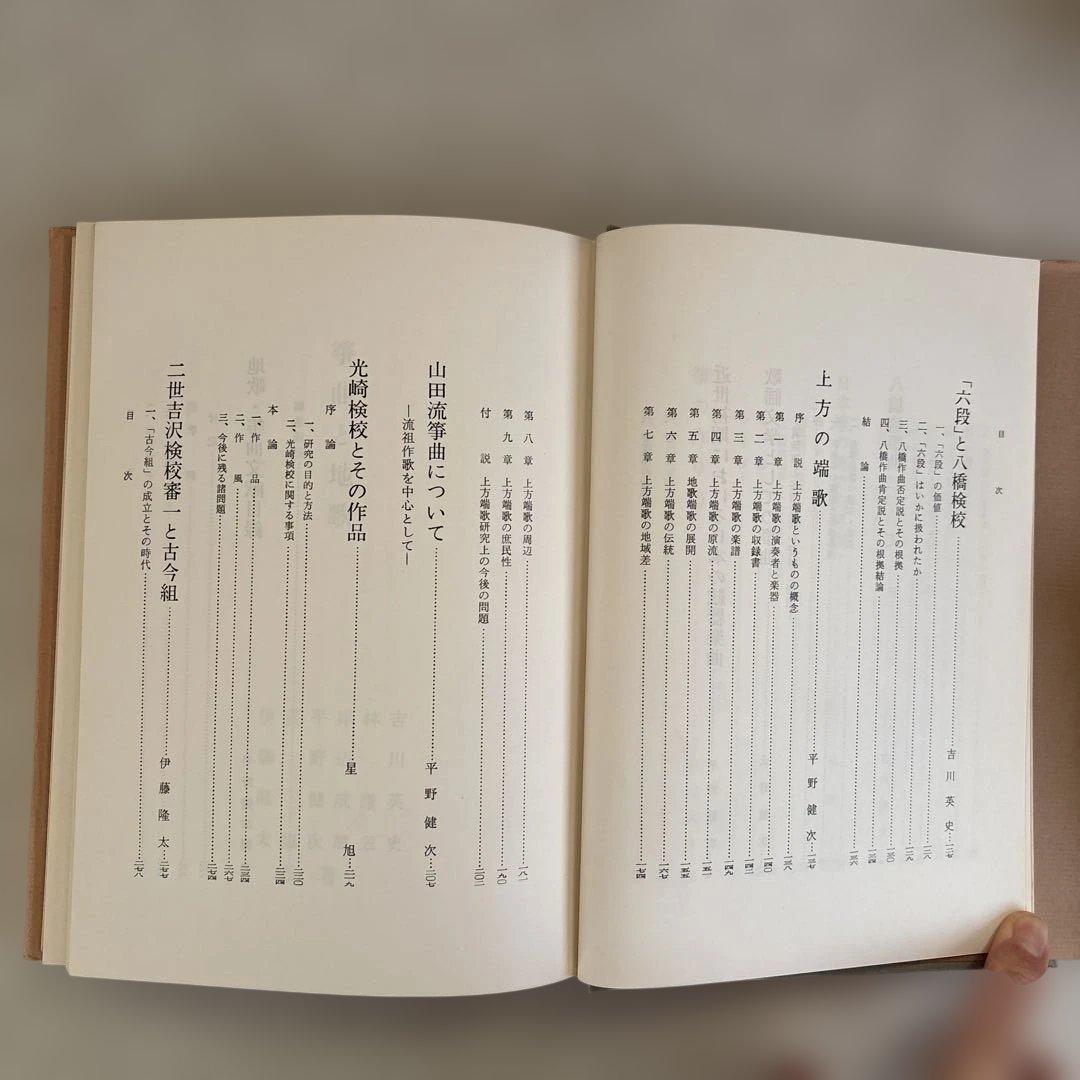 目次
「六段」と八橋検校……吉川英史…一二七
一、「六段」の価値……一二七
二、「六段」はいかに扱われたか……一二八
三、八橋作曲否定説とその根拠……一二九
四、八橋作曲肯定説とその根拠結論……一三〇
結論……一三四
上方の端歌……平野健次…一三七
序説 上方端歌というものの概念……一三八
第一章 上方端歌の演奏者と楽器……一四〇
第二章 上方端歌の収録書……一四二
第三章 上方端歌の楽譜……一四九
第四章 上方端歌の原流……一五一
第五章 地歌端歌の展開……一五五
第六章 上方端歌の伝統……一六七
第七章 上方端歌の地域差……一七四
第八章 上方端歌の周辺……一八一
第九章 上方端歌の庶民性……一九〇
付説 上方端歌研究上の今後の問題……二〇二
山田流箏曲について……平野健次…二〇七
―流祖作歌を中心として―
光崎検校とその作品……星旭…二一九
序論
一、研究の目的と方法……二二〇
二、光崎検校に関する事項……二二四
本論
一、作品……二三四
二、作風……二六七
三、今後に残る諸問題……二七四
二世吉沢検校審一と古今組……伊藤隆太…二七七
一、「古今組」の成立とその時代……二七八
目次